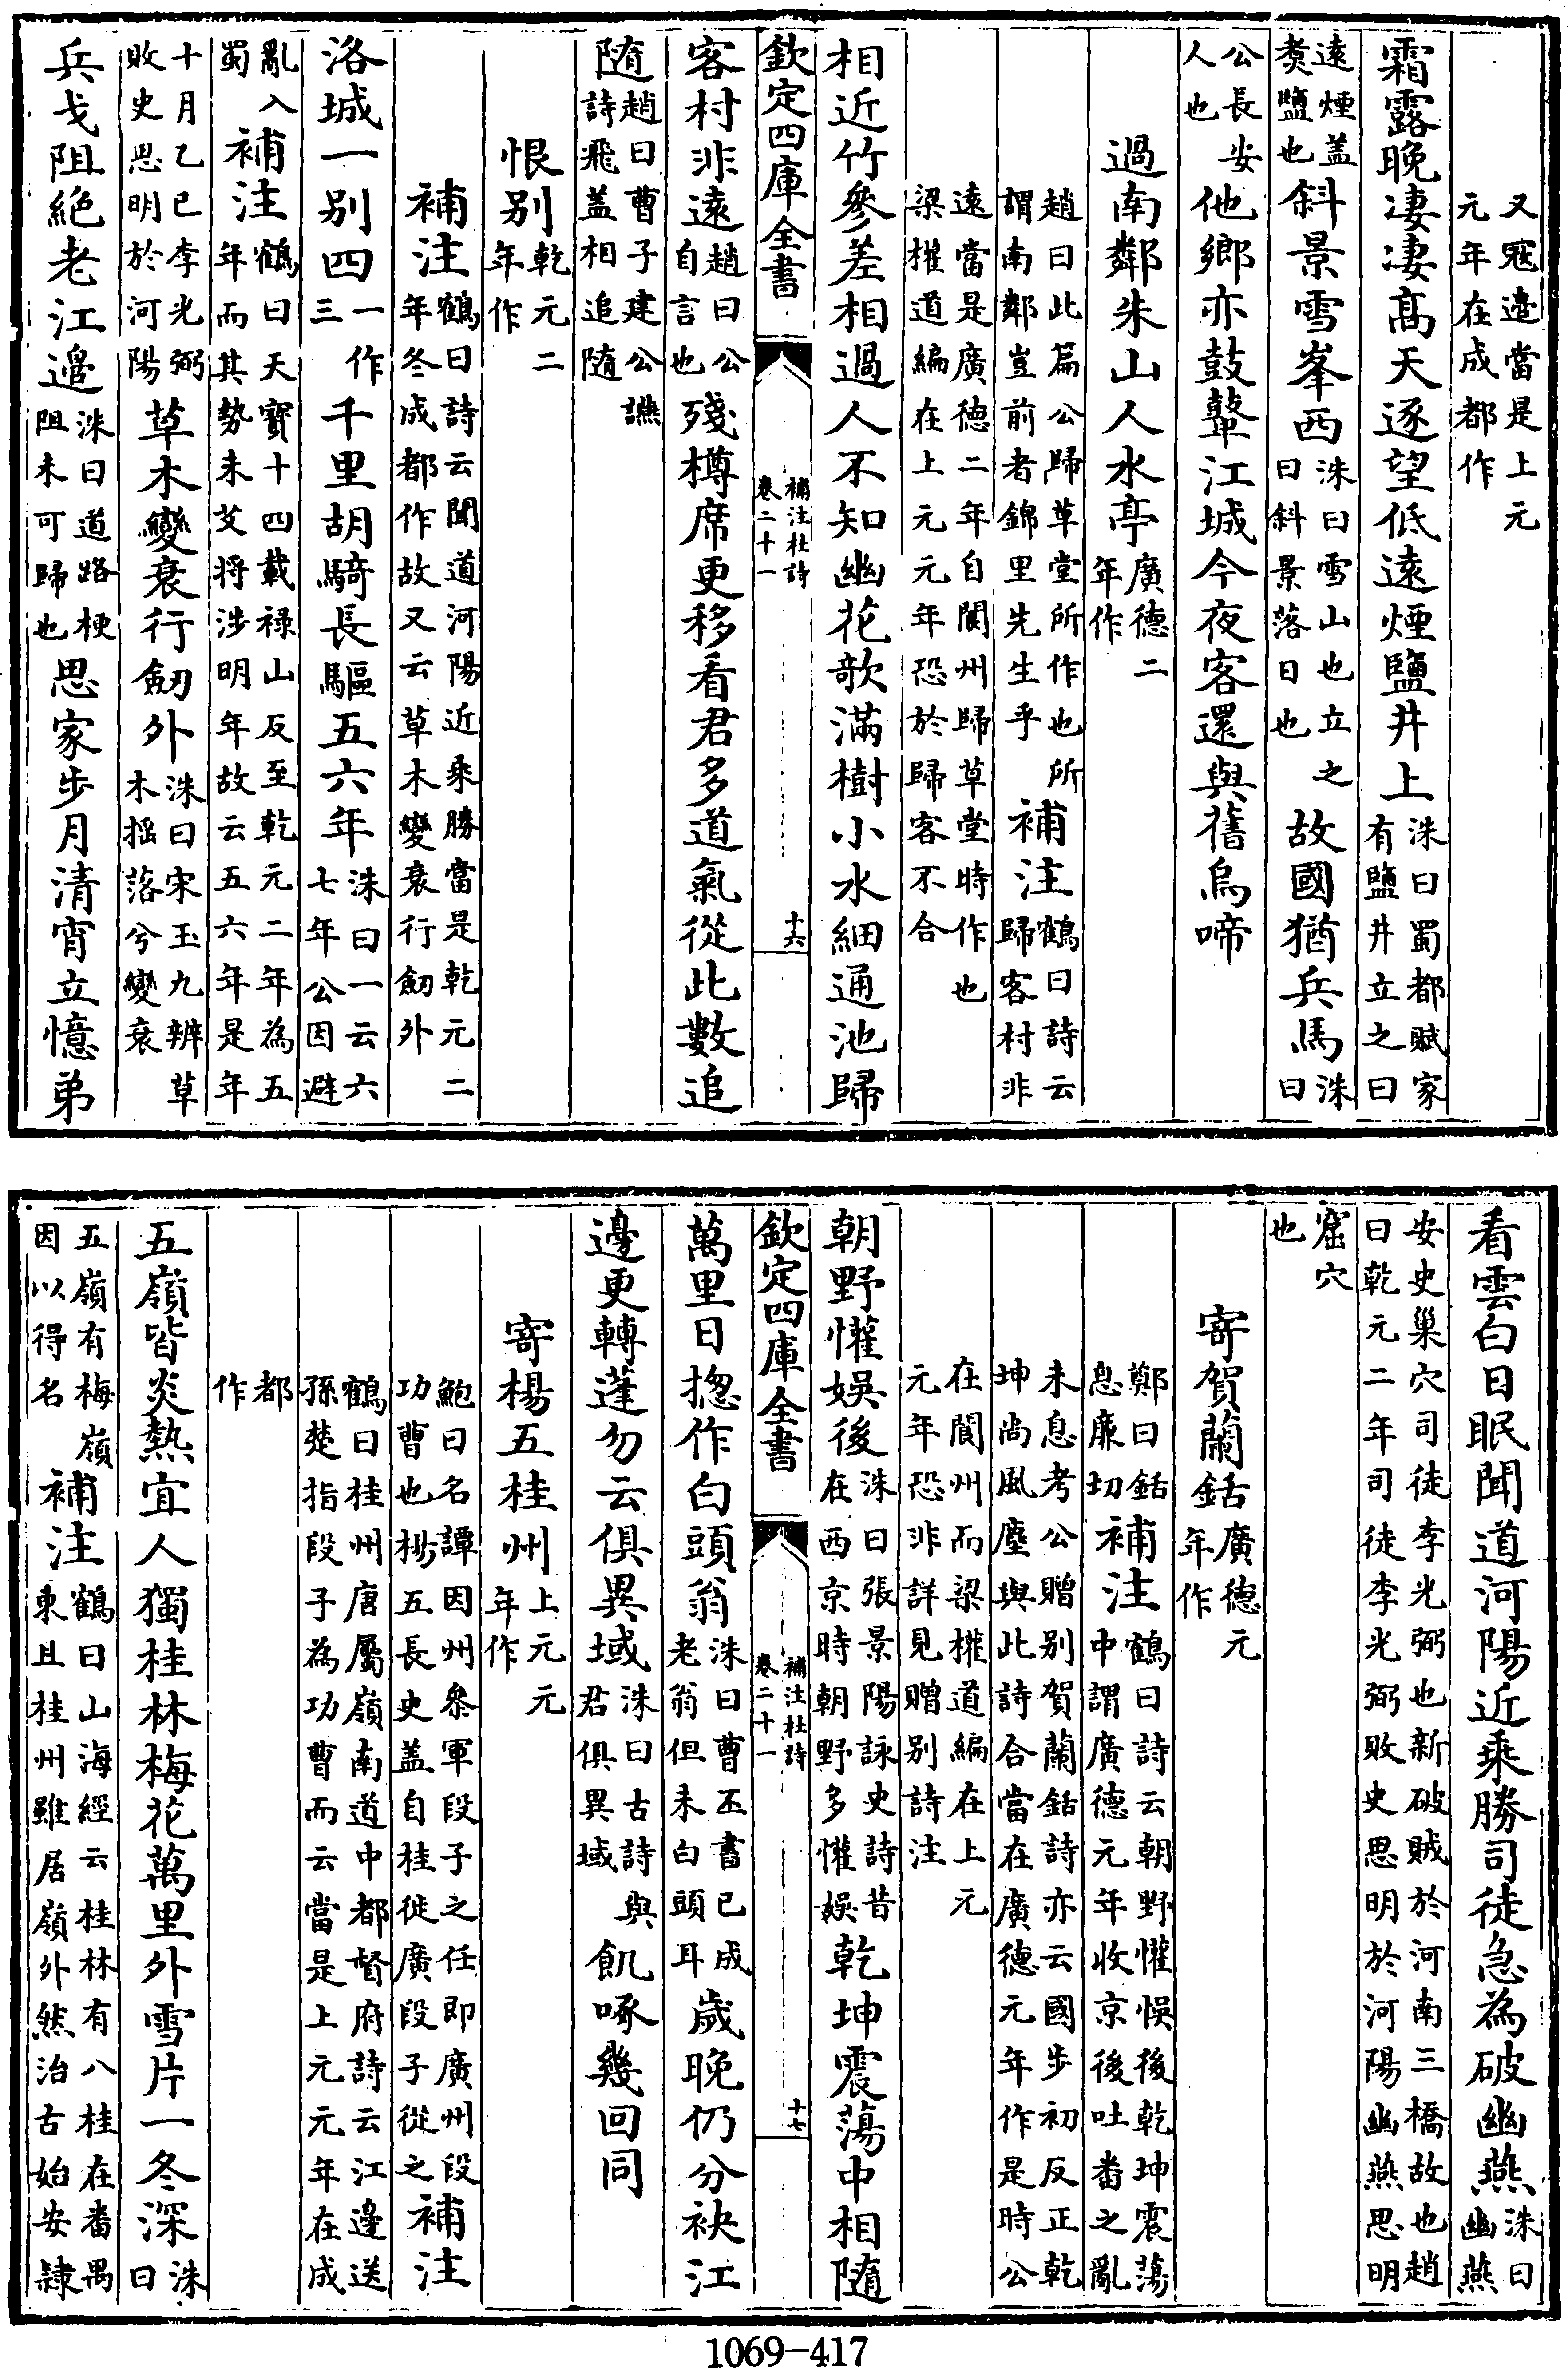 又寇邉當是上元
元年在成都作
霜露晚凄凄髙天逐望低遠煙鹽井上洙曰蜀都賦家
有鹽井立之曰
遠煙盖
煑鹽也斜景雪峯西洙曰雪山也立之
曰斜景落日也故國猶兵馬洙
曰
公長安
人也他鄉亦鼓鼙江城今夜客還與舊烏啼
過南鄰朱山人水亭廣德二
年作
趙曰此篇公歸草堂所作也所
謂南鄰豈前者錦里先生乎補注鶴曰詩云
歸客村非
遠當是廣德二年自閬州歸草堂時作也
梁權道編在上元元年恐於歸客不合
相近竹參差相過人不知幽花欹滿樹小水細通池歸
欽定四庫全書
補注杜詩
卷二十一
十六
客村非遠趙曰公
自言也殘樽席更移看君多道氣從此數追
隨趙曰曹子建公讌
詩飛盖相追隨
恨别乾元二
年作
補注鶴曰詩云聞道河陽近乘勝當是乾元二
年冬成都作故又云草木變衰行劒外
洛城一别四一作
三千里胡騎長驅五六年洙曰一云六
七年公因避
亂入
蜀補注鶴曰天寳十四載禄山反至乾元二年為五
年而其勢未艾将涉明年故云五六年是年
十月乙巳李光弼
敗史思明於河陽草木變衰行劒外洙曰宋玉九辨草
木揺落兮變衰
兵戈阻絶老江邉洙曰道路梗
阻未可歸也思家步月清宵立憶弟
看雲白日眠聞道河陽近乘勝司徒急為破幽燕洙曰
幽燕
安史巢穴司徒李光弼也新破賊於河南三橋故也趙
曰乾元二年司徒李光弼敗史思明於河陽幽燕思明
窟穴
也
寄賀蘭銛廣德元
年作
鄭曰銛
息廉切補注鶴曰詩云朝野懽悮後乾坤震蕩
中謂廣德元年收京後吐蕃之亂
未息考公贈别賀蘭銛詩亦云國步初反正乾
坤尚風塵與此詩合當在廣德元年作是時公
在閬州而梁權道編在上元
元年恐非詳見贈别詩注
朝野懽娱後洙曰張景陽詠史詩昔
在西京時朝野多懽娱乾坤震蕩中相隨
欽定四庫全書
補注杜詩
卷二十一
十七
萬里日揔作白頭翁洙曰曹丕書已成
老翁但未白頭耳歲晚仍分袂江
邊更轉蓬勿云俱異域洙曰古詩與
君俱異域飢啄幾回同
寄楊五桂州上元元
年作
鮑曰名譚因州參軍段子之任即廣州段
功曹也楊五長史盖自桂徙廣段子從之補注
鶴曰桂州唐屬嶺南道中都督府詩云江邊送
孫楚指段子為功曹而云當是上元元年在成
都
作
五嶺皆炎熱宜人獨桂林梅花萬里外雪片一冬深洙
曰
五嶺有梅嶺
因以得名補注鶴曰山海經云桂林有八桂在番禺
東且桂州雖居嶺外然治古始安隸
1069-417